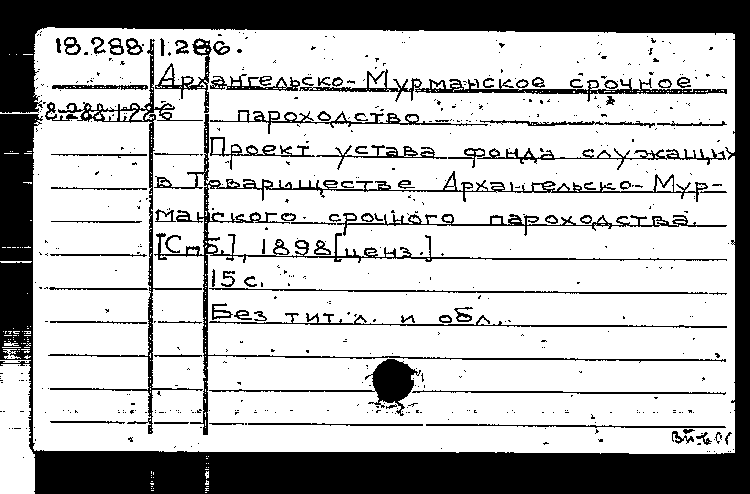 18.288.1.286.
Архангельско-Мурманское срочное
18.288.1.286 пароходство.
Проект устава фонда служащих
в Товариществе Архангельско-Мур-
манского срочного пароходства.
[Спб.], 1898 [ценз.].
15 с.
Без тит. л. и обл.